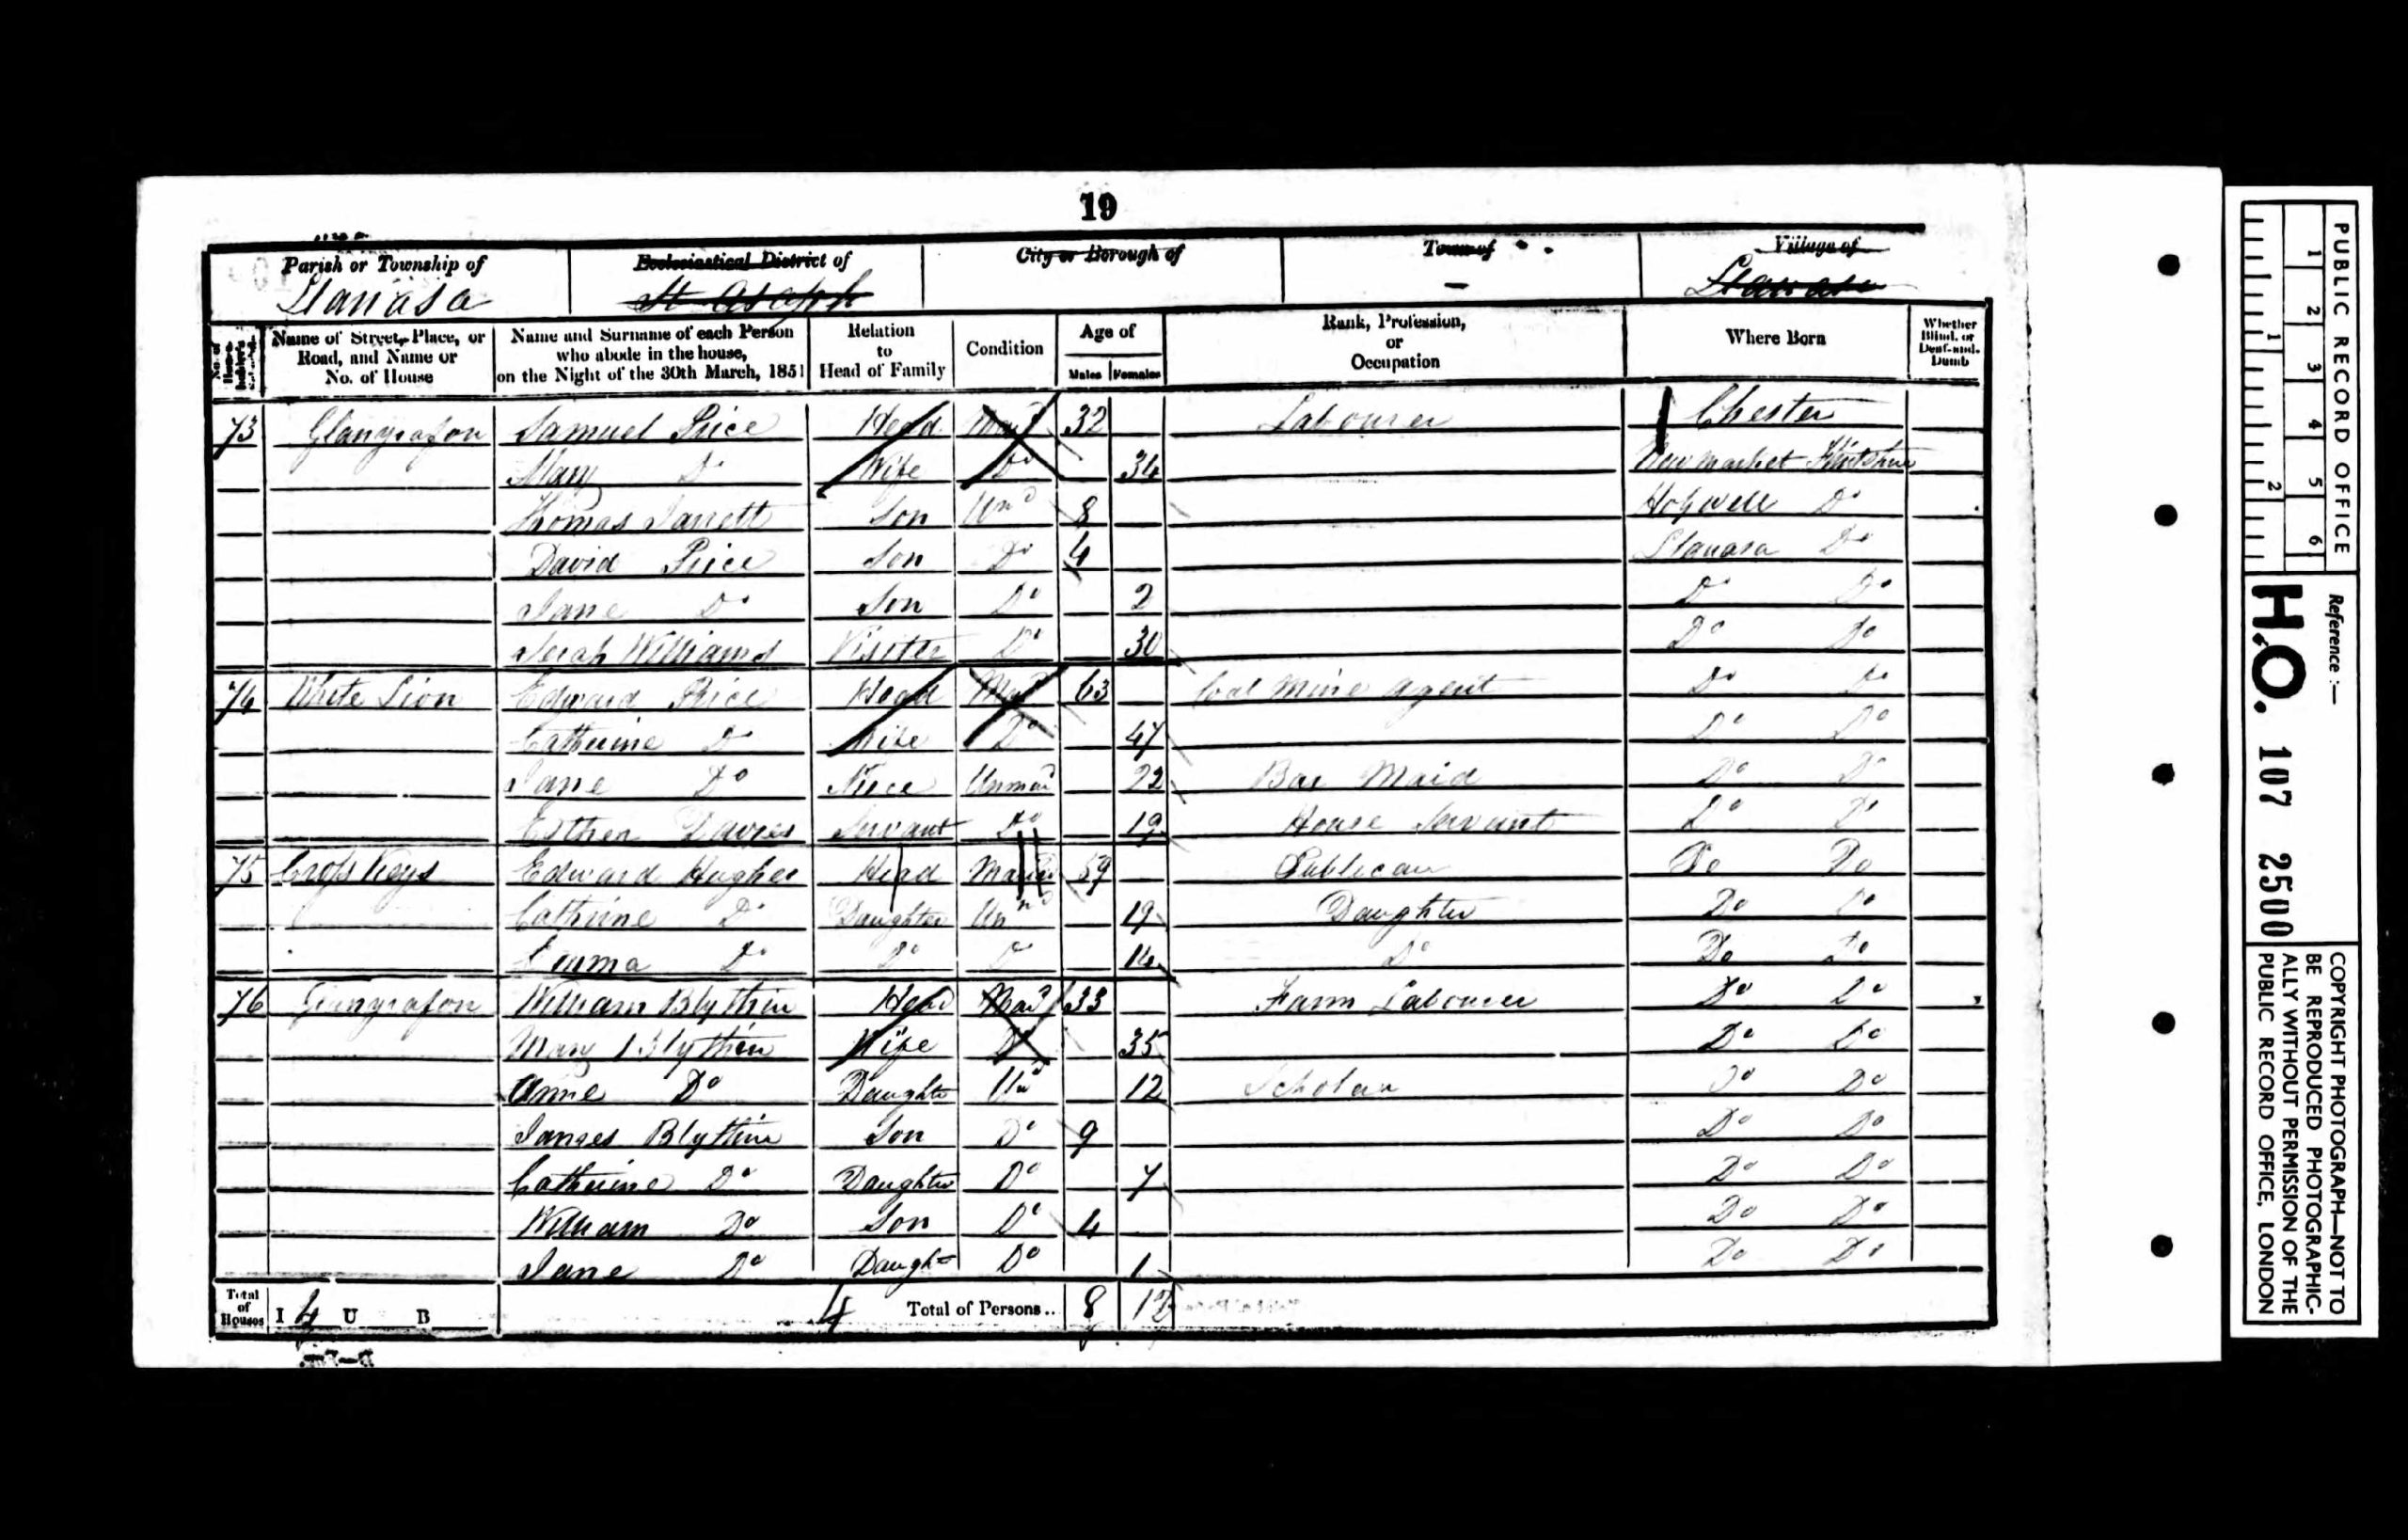 19
Parish or Township of
Llanasa
Ecclesiastical District of
St Asaph
City or Borough of
Town of
-
Village of
Llanasa
Name of Street, Place, or Road, and Name or No. of House
Name and Surname of each Person who abode in the house, on the Night of the 30th March, 1851
Relation to Head of Family
Condition
Age of
Males Females
Rank, Profession, or Occupation
Where Born
Whether Blind, or Deaf-and-Dumb
73 Glanyrafon Samuel Price Head Mard 32 Labourer Chester
Mary Do Wife Do 34 Newmarket Flintshire
Thomas Jarrett Son Und 8 Holywell Do
David Price Son Do 4 Llanasa Do
Jane Do Son Do 2 Do Do
Sarah Williams Visiter Do 30 Do Do
74 White Lion Edward Price Head Mard 63 Coal Mine Agent Do Do
Catherine Do Wife Do 47 Do Do
Jane Do Niece Unmard 22 Bar Maid Do Do
Esther Davies Servant Do 19 House Servant Do Do
75 Cross Keys Edward Hughes Head 59 Publican Do Do
Cathrine Do Daughter Und 19 Daughter Do Do
Emma Do Do Do 14 Do Do Do
76 Glanyrafon William Blythin Head Mard 33 Farm Labourer Do Do
Mary Blythin Wife Do 35 Do Do
Anne Do Daughtr Und 12 Scholar Do Do
James Blythin Son Do 9 Do Do
Catherine Do Daughter Do 7 Do Do
William Do Son Do 4 Do Do
Jane Do Daught Do 1 Do Do
Total of Houses I 4 U B 4 Total of Persons.. 8 12
PUBLIC RECORD OFFICE
1 2 3 4 5 6
1 2
Reference :-
H.O. 107 2500
COPYRIGHT PHOTOGRAPH—NOT TO
BE REPRODUCED PHOTOGRAPHIC-
ALLY WITHOUT PERMISSION OF THE
PUBLIC RECORD OFFICE, LONDON